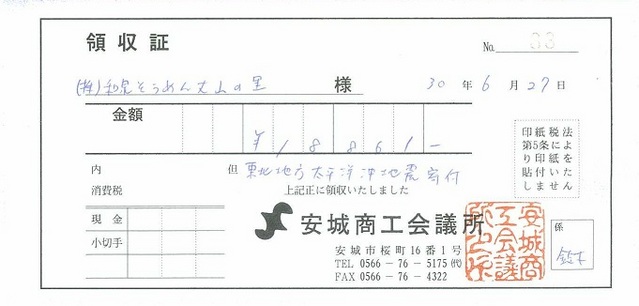 領収証
No. 33
(株)和泉そうめん丈山の里 様 30年6月27日
金額
¥18861-
内 但 東北地方太平洋沖地震寄付
消費税 上記正に領収いたしました
印紙税法
第5条によ
り印紙を
貼付いた
しません
現金
小切手
安城商工会議所
安城市桜町16番1号
TEL 0566-76-5175(代)
FAX 0566-76-4322
安城商
工会議
所之印
係
鈴木